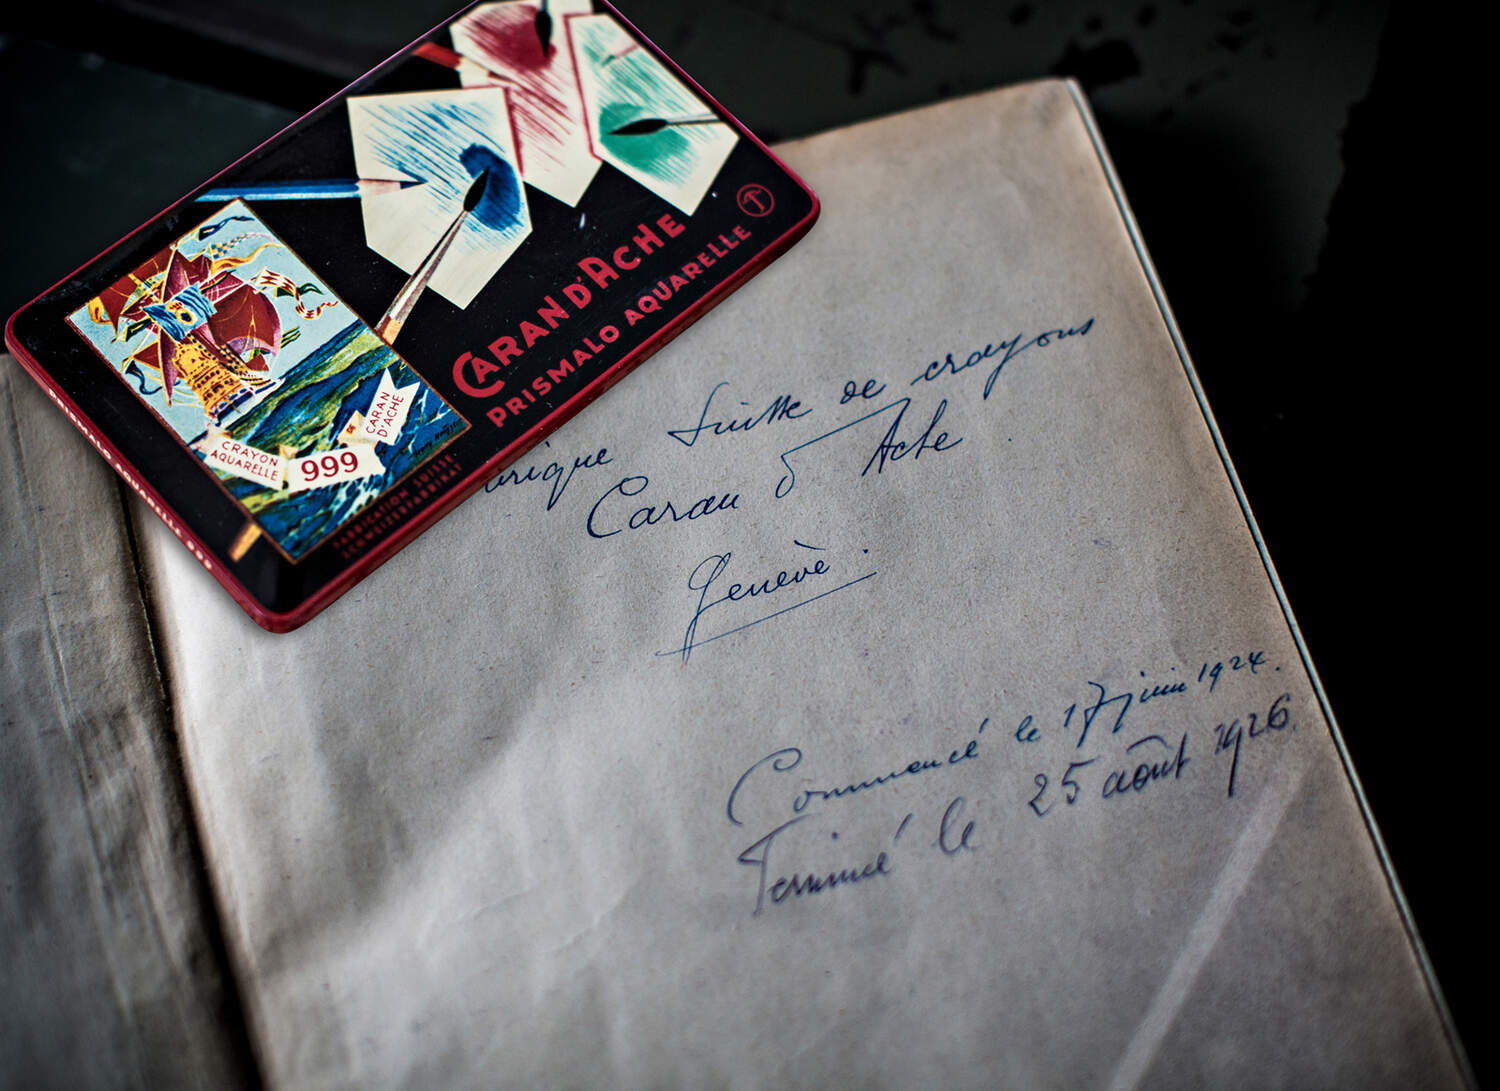 CARAN D'ACHE
PRISMALO AQUARELLE
CRAYON
AQUARELLE
999
DE
CARAN
D'ACHE
FABRICATION SUISSE
SCHWEIZERFABRIKAT
PRISMALO AQUARELLE 999
Suisse de crayons
Caran d'Ache
Genève.
Commencé le 17 juin 1924.
Terminé le 25 août 1926.